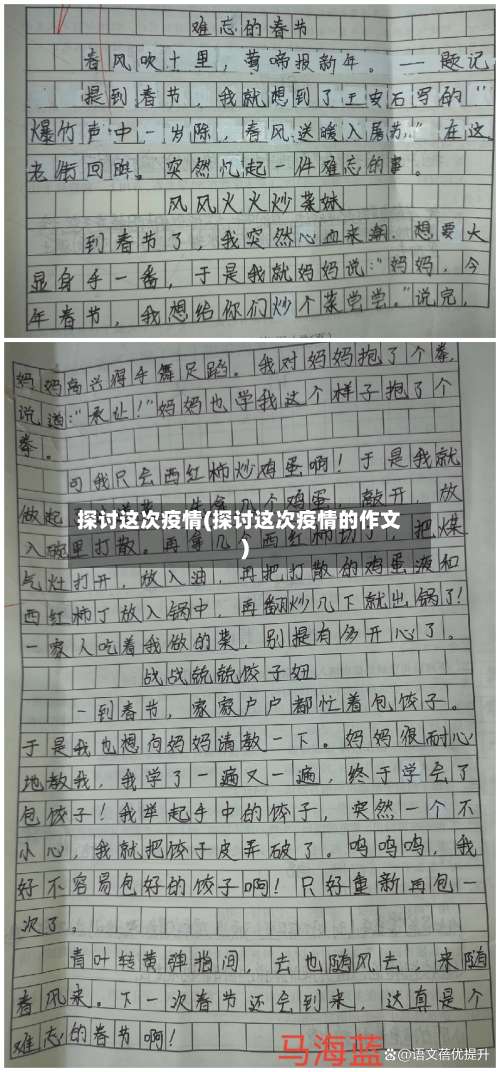 难忘的春节
春风吹十里，莺啼报新年。——题记
提到春节，我就想到了王安石写的“
爆竹声中一岁除，春风送暖入屠苏”在这
老街回眸。突然忆起一件难忘的事。
风风火火炒菜妹
到春节了，我突然心血来潮，想要大
显身手一番，于是我就妈妈说：“妈妈，今
年春节，我想给你们炒个菜尝尝。”说完，
妈妈高兴得手舞足蹈。我对妈妈抱了个拳，
说道：“承让！”妈妈也学我这个样子抱了个
拳。
可我只会西红柿炒鸡蛋啊！于是我就
做起 个鸡蛋，敲开，放
探讨这次疫情(探讨这次疫情的作文
)
入碗里打散。再拿几个西红柿切丁，把煤
气灶打开，放入油，再把打散的鸡蛋液和
西红柿丁放入锅中，再翻炒几下就出锅了！
一家人吃着我做的菜，别提有多开心了。
战战兢兢饺子妞
一到春节，家家户户都忙着包饺子。
于是我也想向妈妈请教一下。妈妈很耐心
地教我，我学了一遍又一遍，终于学会了
包饺子！我举起手中的饺子，突然一个不
小心，我就把饺子皮弄破了。呜呜呜，我
好不容易包好的饺子啊！只好重新再包一
次了。
青叶转黄弹指间，去也随风去，来随
春风来。下一次春节还会到来，这真是个
难忘的春节啊！
马海蓝
@语文蓓优提升